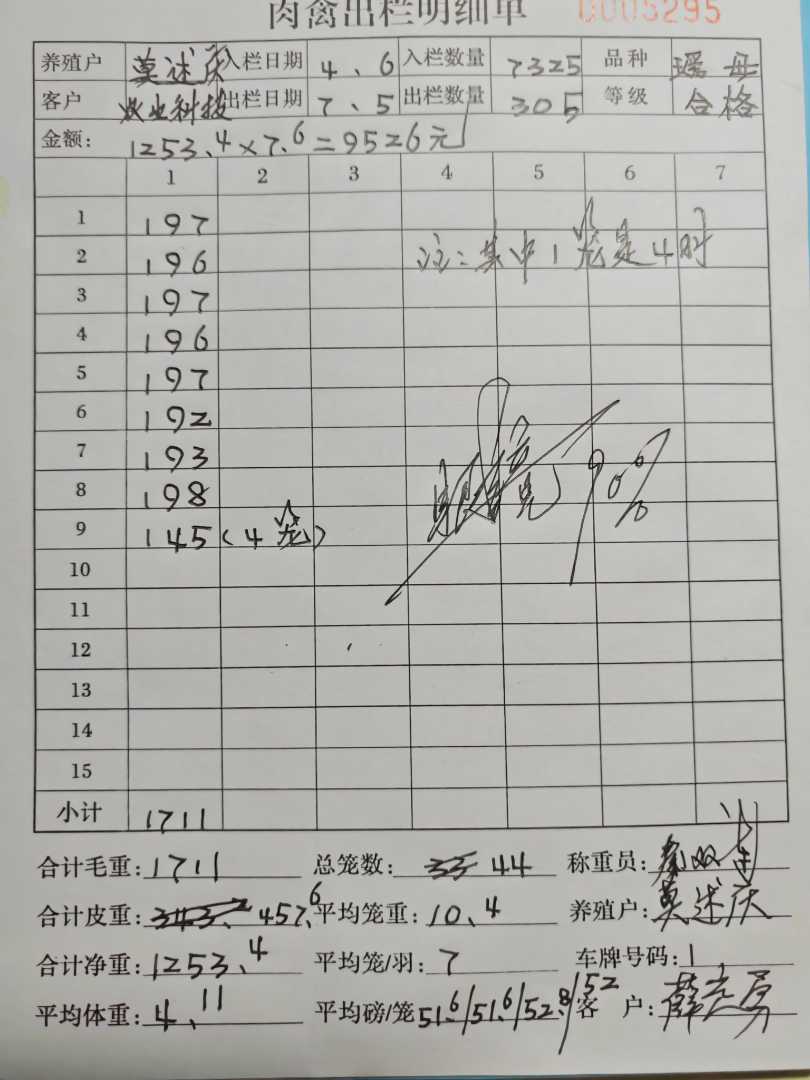 肉禽出栏明细单 0005295
养殖户 莫述庆 入栏日期 4、6 入栏数量 7325 品种 瑶母
客户 兴业科技 出栏日期 7、5 出栏数量 305 等级 合格
金额: 1253.4×7.6=9526元
1 2 3 4 5 6 7
1 197
2 196 注:其中1笼是4时
3 197
4 196
5 197
6 192
7 193 90%
8 198
9 145(4笼)
10
11
12
13
14
15
小计 1711
合计毛重:1711 总笼数: 33 44 称重员:
合计皮重:343.2 457.6 平均笼重:10.4 养殖户:莫述庆
合计净重:1253.4 平均笼/羽:7 车牌号码:1
平均体重:4.11 平均磅/笼 51.6/51.6/52.8/52 客户: